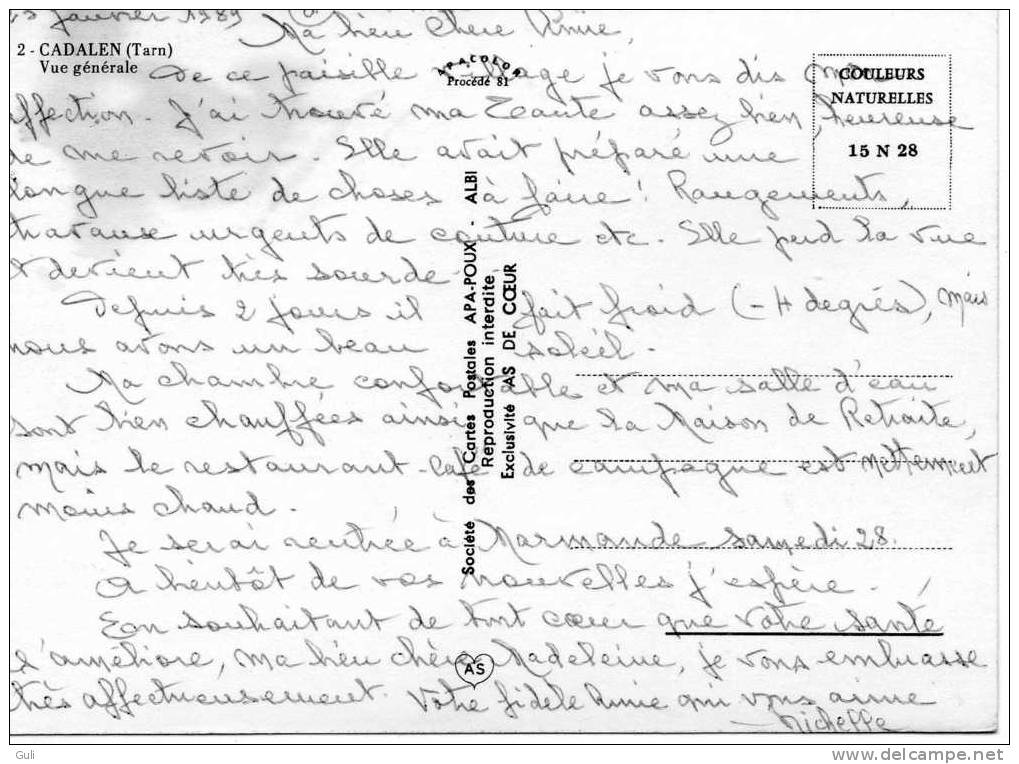 Janvier 1989
Ma bien Chère Amie,
2 - CADALEN (Tarn)
Vue générale
APACOLOR
Procédé 81
COULEURS
NATURELLES
15 N 28
De ce paisible village je vous dis mon
affection. J'ai trouvé ma Tante assez bien, heureuse
de me revoir. Elle avait préparé une
longue liste de choses à faire ! Rangements,
travaux urgents de couture etc. Elle perd la vue
et devient très sourde.
Depuis 2 jours il fait froid (-4 degrés), mais
nous avons un beau soleil.
Ma chambre confortable et ma salle d'eau
sont bien chauffées ainsi que la Maison de Retraite,
mais le restaurant-café de campagne est nettement
moins chaud.
Je serai rentrée à Marmande samedi 28.
A bientôt de vos nouvelles j'espère.
En souhaitant de tout cœur que votre santé
s'améliore, ma bien chère Madeleine, je vous embrasse
très affectueusement. Votre fidèle Amie qui vous aime
Michelle
Société des Cartes Postales APA-POUX - ALBI
Reproduction interdite
Exclusivité AS DE CŒUR
AS
Guli
www.delcampe.net